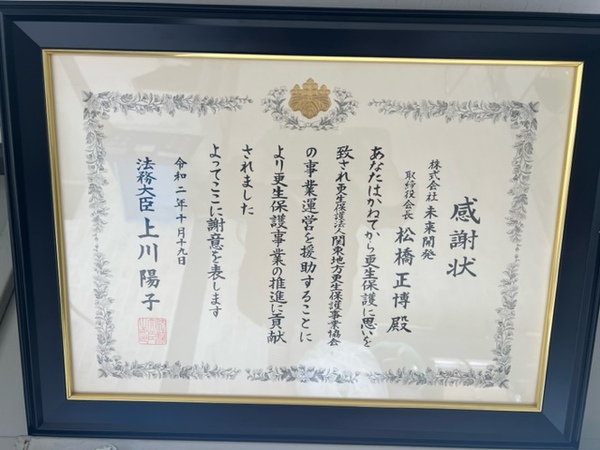 感謝状
株式会社 未来開発
取締役会長 松橋正博 殿
あなたはかねてから更生保護に思いを
致され更生保護法人関東地方更生保護事業協会
の事業運営を援助することに
より更生保護事業の推進に貢献
されました
よってここに謝意を表します
令和二年十月十九日
法務大臣 上川陽子